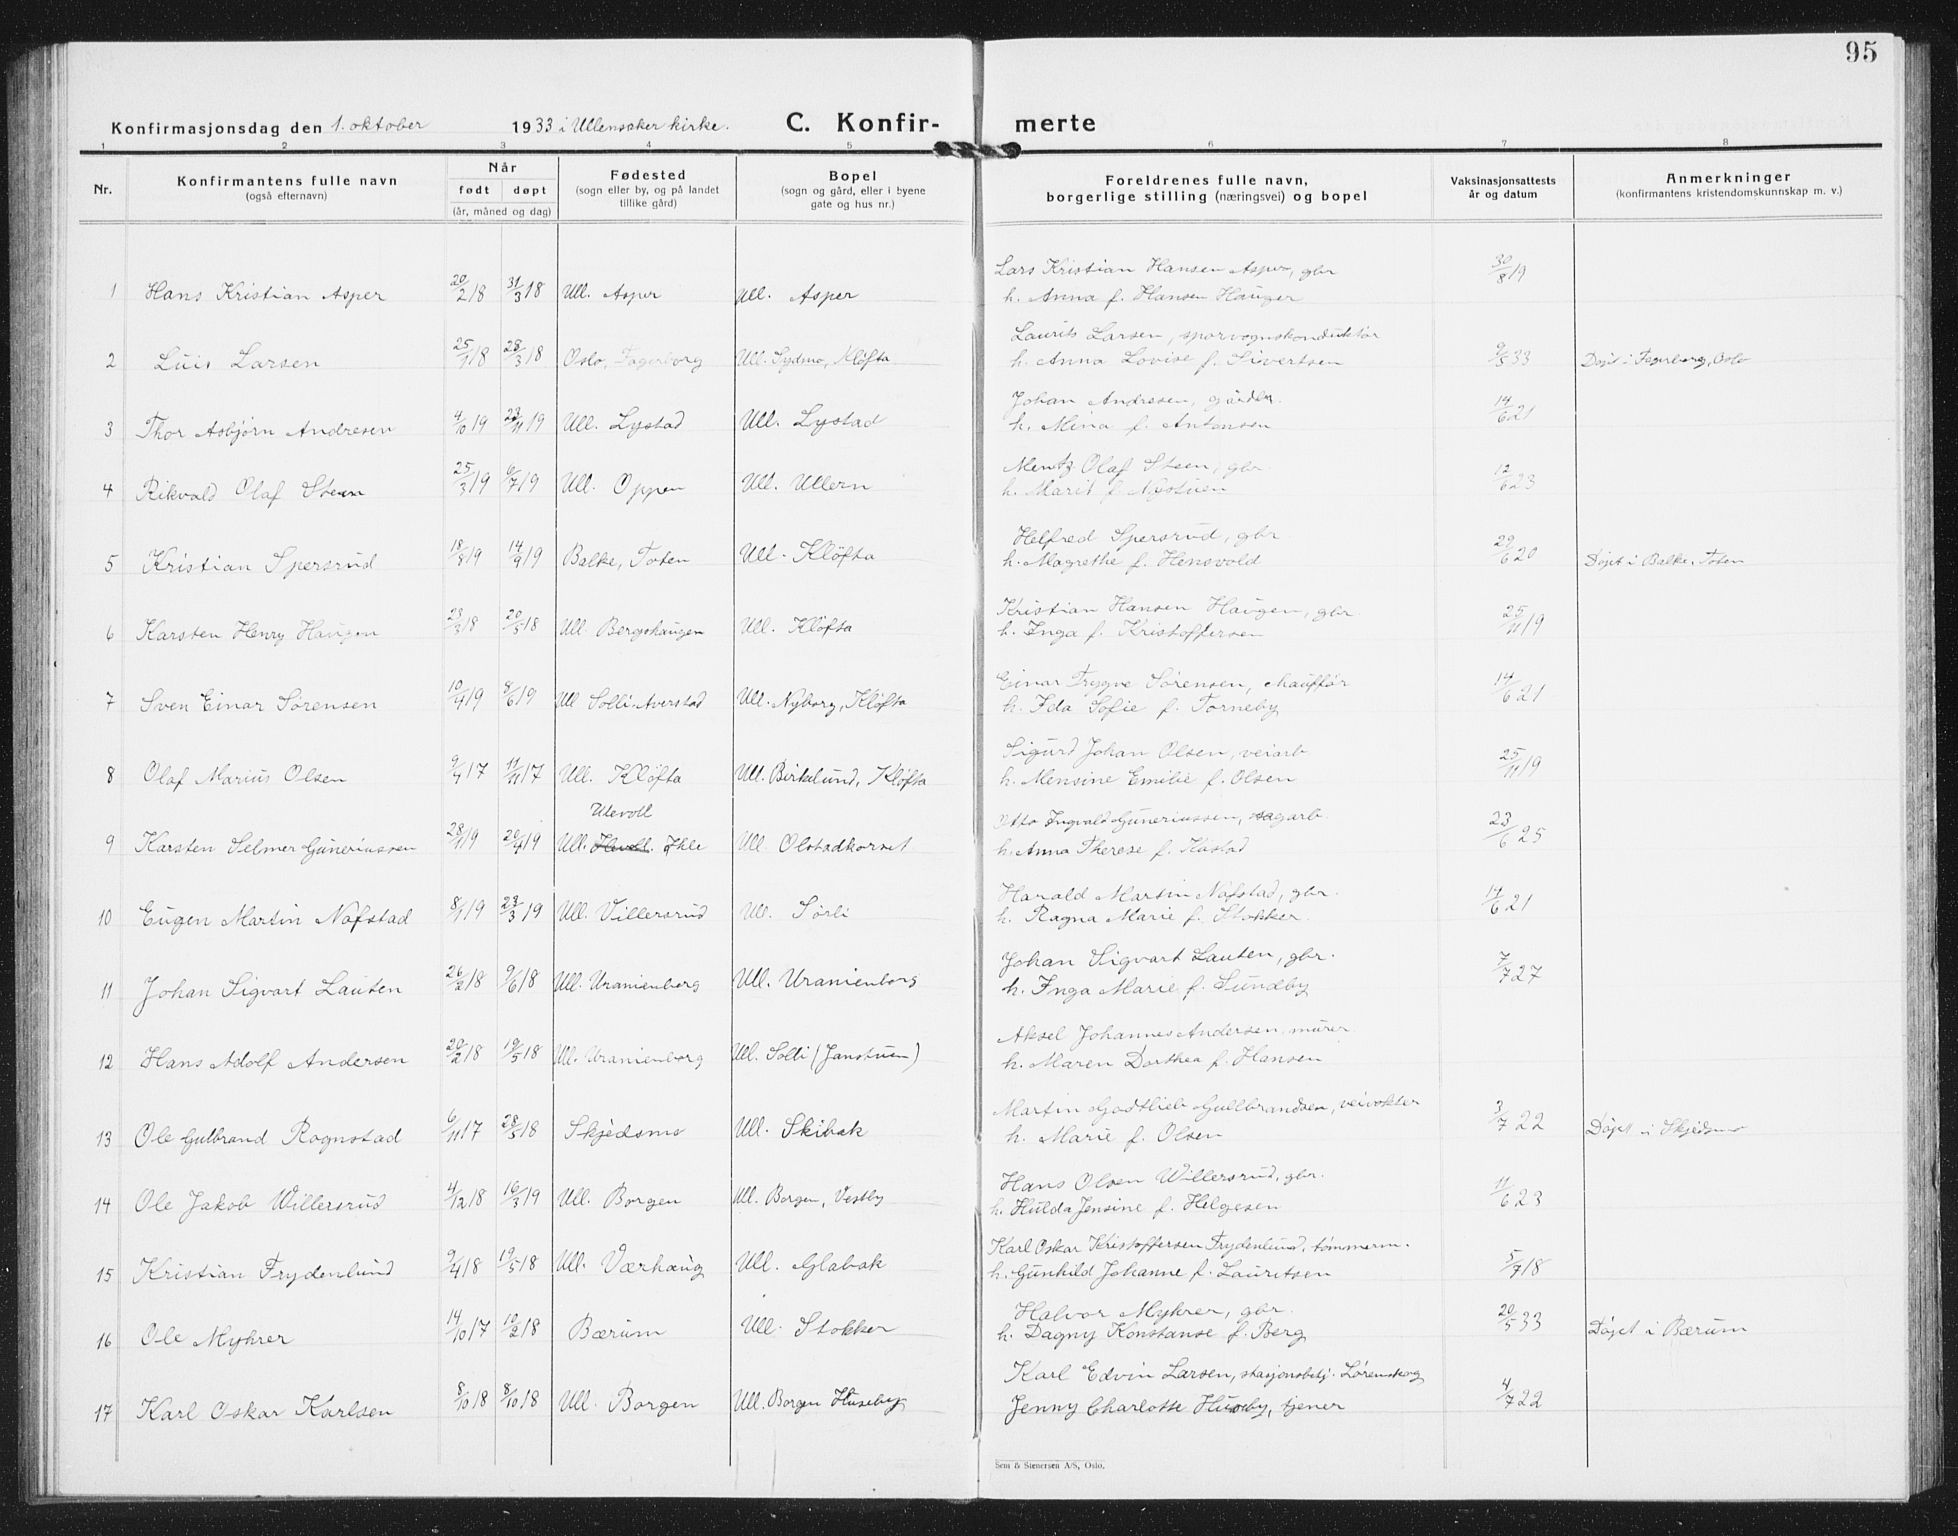 95
Konfirmasjonsdag den 1. oktober 1933 i Ullensaker kirke. C. Konfir- merte
1 2 3 4 5 6 7 8
Nr. Konfirmantens fulle navn (også efternavn) Når født døpt (år, måned og dag) Fødested (sogn eller by, og på landet tillike gård) Bopel (sogn og gård, eller i byene gate og hus nr.) Foreldrenes fulle navn, borgerlige stilling (næringsvei) og bopel Vaksinasjonsattests år og datum Anmerkninger (konfirmantens kristendomskunnskap m. v.)
Lars Kristian Hansen Asper, gbr
1 Hans Kristian Asper 20/2 18 31/3 18 Ull. Asper Ull. Asper h. Anna f. Hansen Hauger 30/8 19
Laurits Larsen, sporvognskonduktør
2 Luis Larsen 25/1 18 28/3 18 Oslo, Fagerborg Ull. Sydmo, Kløfta h. Anna Lovise f. Sivertsen 9/5 33 Døpt i Fagerborg, Oslo
Johan Andresen, gårdbr.
3 Thor Asbjørn Andresen 4/10 19 23/11 19 Ull. Lystad Ull. Lystad h. Mina f. Antonsen 14/6 21
Mentz Olaf Steen, gbr.
4 Rikvald Olaf Steen 25/3 19 6/7 19 Ull. Oppen Ull. Ullern h. Marit f. Nystuen 12/6 23
Helfred Spersrud, gbr.
5 Kristian Spersrud 18/8 19 14/9 19 Balke, Toten Ull. Kløfta h. Magrethe f. Hensvold 29/6 20 Døpt i Balke, Toten
Kristian Hansen Haugen, gbr.
6 Karsten Henry Haugen 23/3 18 20/5 18 Ull. Bergshaugen Ull. Kløfta h. Inga f. Kristoffersen 25/11 19
Einar Trygve Sørensen, chauffør
7 Sven Einar Sørensen 10/4 19 8/6 19 Ull Solli-Averstad Ull. Nyborg, Kløfta h. Ida Sofie f. Torneby 14/6 21
Sigurd Johan Olsen, veiarb
8 Olaf Marius Olsen 9/7 17 11/11 17 Ull. Kløfta Ull. Birkelund, Kløfta h. Mensine Emilie f. Olsen 25/11 19
Utevoll
Otto Ingvald Guneriussen, sagarb
9 Karsten Selmer Guneriussen 28/1 19 20/4 19 Ull. Ihle Ull Olstadkorset h. Anna Therese f. Kåstad 23/6 25
Harald Martin Nafstad, gbr.
10 Eugen Martin Nafstad 8/1 19 23/3 19 Ull. Villersrud Ull. Sørli h. Ragna Marie f. Stokker 14/6 21
Johan Sigvart Lauten, gbr.
11 Johan Sigvart Lauten 26/2 18 9/6 18 Ull. Uranienborg Ull. Uranienborg h. Inga Marie f. Sundby 7/7 27
Aksel Johannes Andersen, murer
12 Hans Adolf Andersen 20/2 18 19/5 18 Ull. Uranienborg Ull. Solli (Janstuen) h. Maren Dorthea f. Hansen
Martin Godtlieb Gullbrandsen, veivokter
13 Ole Gulbrand Rognstad 6/11 17 28/5 18 Skjedsmo Ull. Skibak h. Marie f. Olsen 3/7 22 Døpt i Skjedsmo
Hans Olsen Willersrud, gbr.
14 Ole Jakob Willersrud 4/12 18 16/3 19 Ull. Borgen Ull. Borgen, Vestby h. Hulda Jensine f. Helgesen 11/6 23
Karl Oskar Kristoffersen Frydenlund, tømmerm.
15 Kristian Frydenlund 9/4 18 19/5 18 Ull. Værhaug Ull. Glabak h. Gunhild Johanne f. Lauritsen 5/7 18
Halvor Myhrer, gbr.
16 Ole Myhrer 14/10 17 10/2 18 Bærum Ull. Stokker h. Dagny Konstanse f. Berg 20/5 33 Døpt i Bærum
Karl Edvin Larsen, stasjonsbetj. Lørenskog
17 Karl Oskar Karlsen 8/10 18 8/10 18 Ull. Borgen Ull. Borgen Huseby Jenny Charlotte Huseby, tjener 4/7 22
Sem & Stenersen A/S, Oslo.